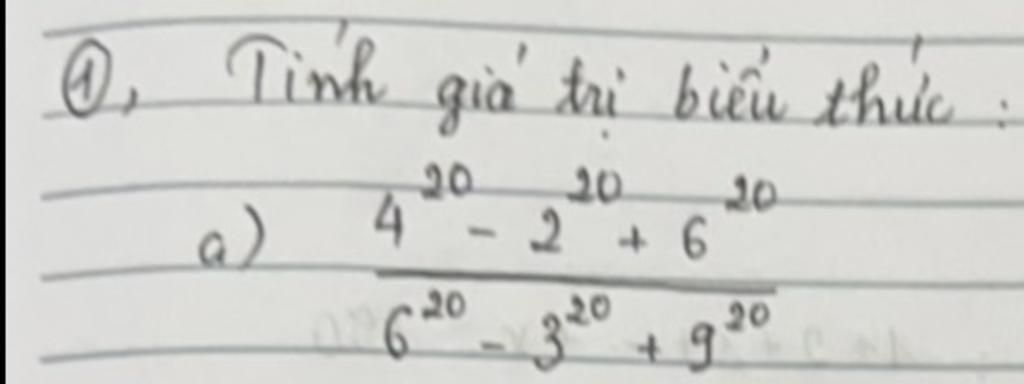 ①, Tính giá trị biểu thức :
a) 4^20 - 2^20 + 6^20
6^20 - 3^20 + 9^20